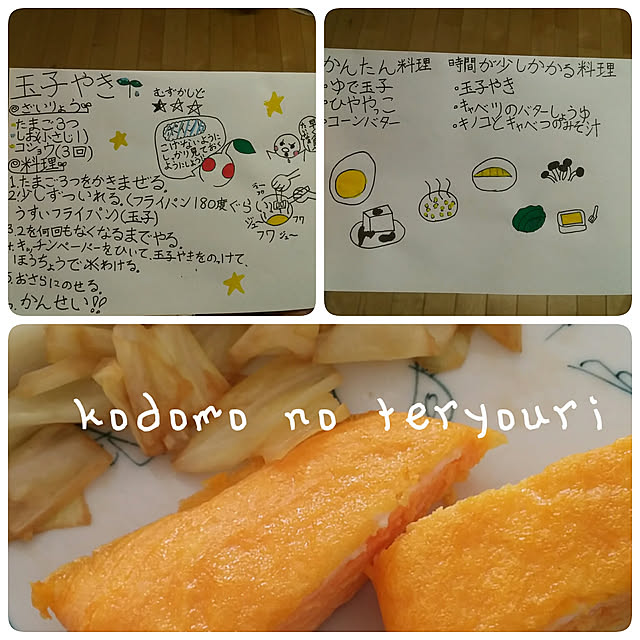 玉子やき
むずかしど
@ざいりょう
・たまご3つ
・しお(小さじ1)
・コショウ(3回)
@料理
ポイント
こげないように
しっかり見てお
ようにしよう
1.たまご3つをかきまぜる。
2.少しずついれる。(フライパン180度ぐらい
うすいフライパン)(玉子)
3.2を何回もなくなるまでやる。
4.キッチンペーパーをひいて、玉子やきをのっけて、
ほうちょうで
わける。
5.おさらにのせる。
かんせい!!
ジュー
フワ
フワ
ジュー
かんたん料理
・ゆで玉子
・ひややっこ
・コーンバター
時間が少しかかる料理
・玉子やき
・キャベツのバターしょうゆ
・キノコとキャベツのみそ汁
kodomo no teryouri